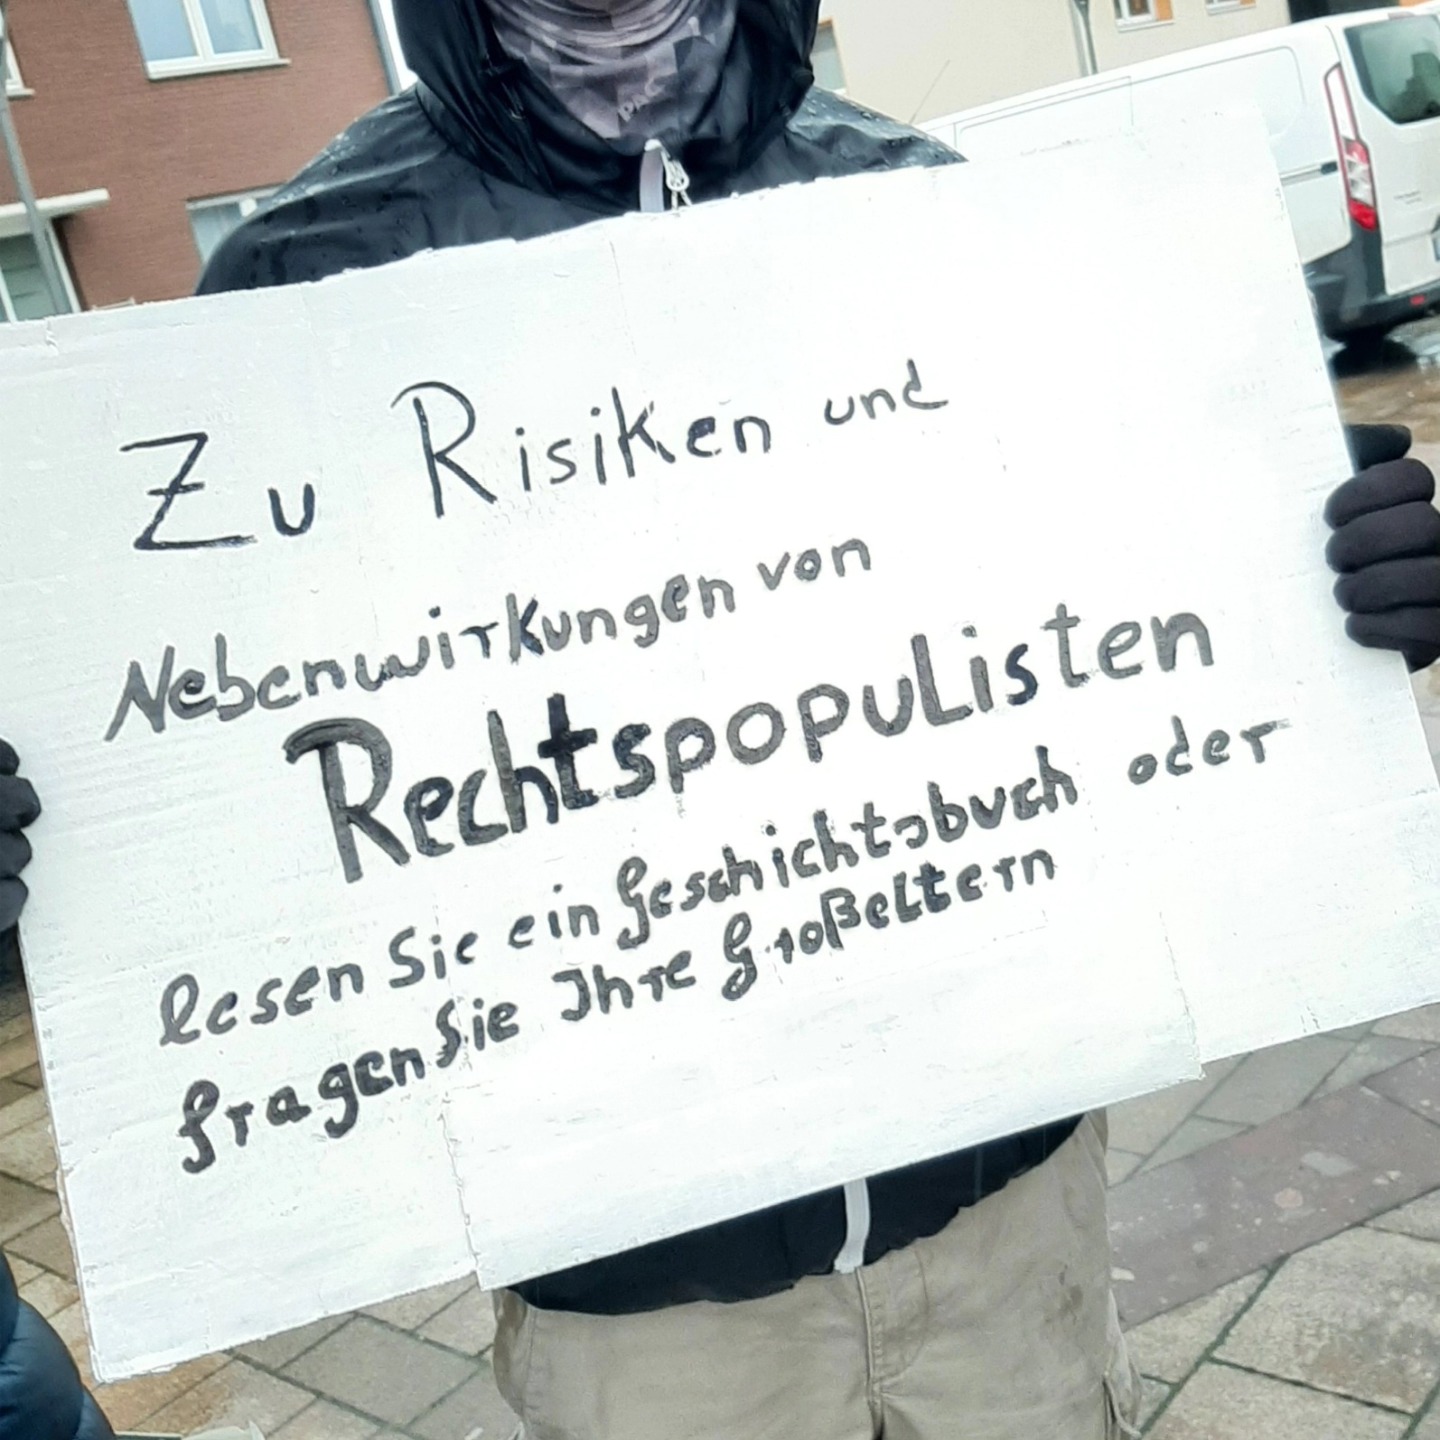 Zu Risiken und
Nebenwirkungen von
Rechtspopulisten
lesen Sie ein Geschichtsbuch oder
fragen Sie Ihre Großeltern